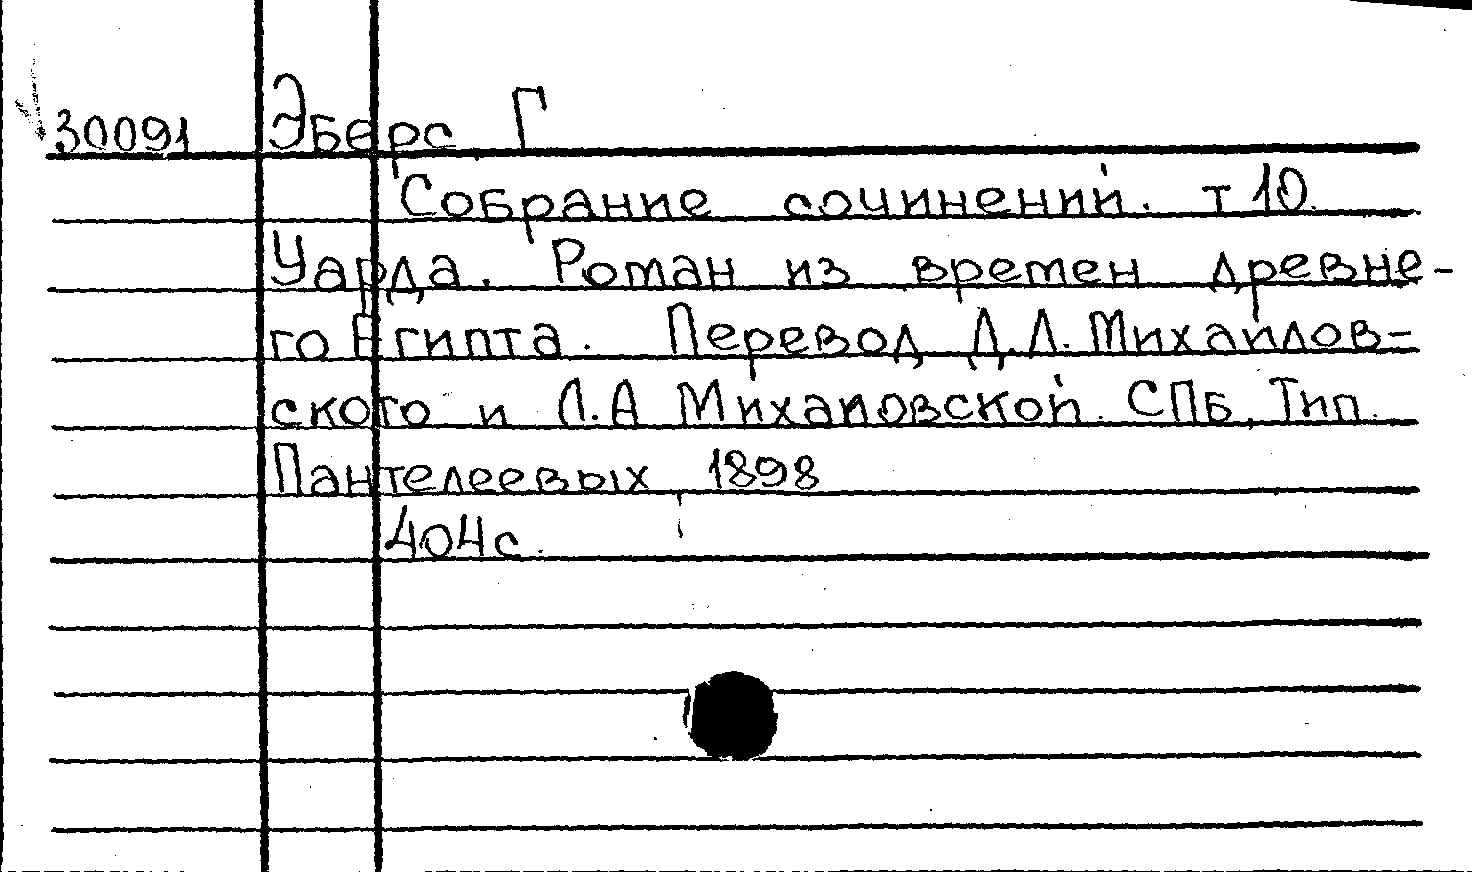 30091 Эберс Г
Собрание сочинений. т 10.
Уарда. Роман из времен древне-
го Египта. Перевод Д.Л. Михайлов-
ского и Л.А Михайловской. СПб, Тип.
Пантелеевых 1898
404с.